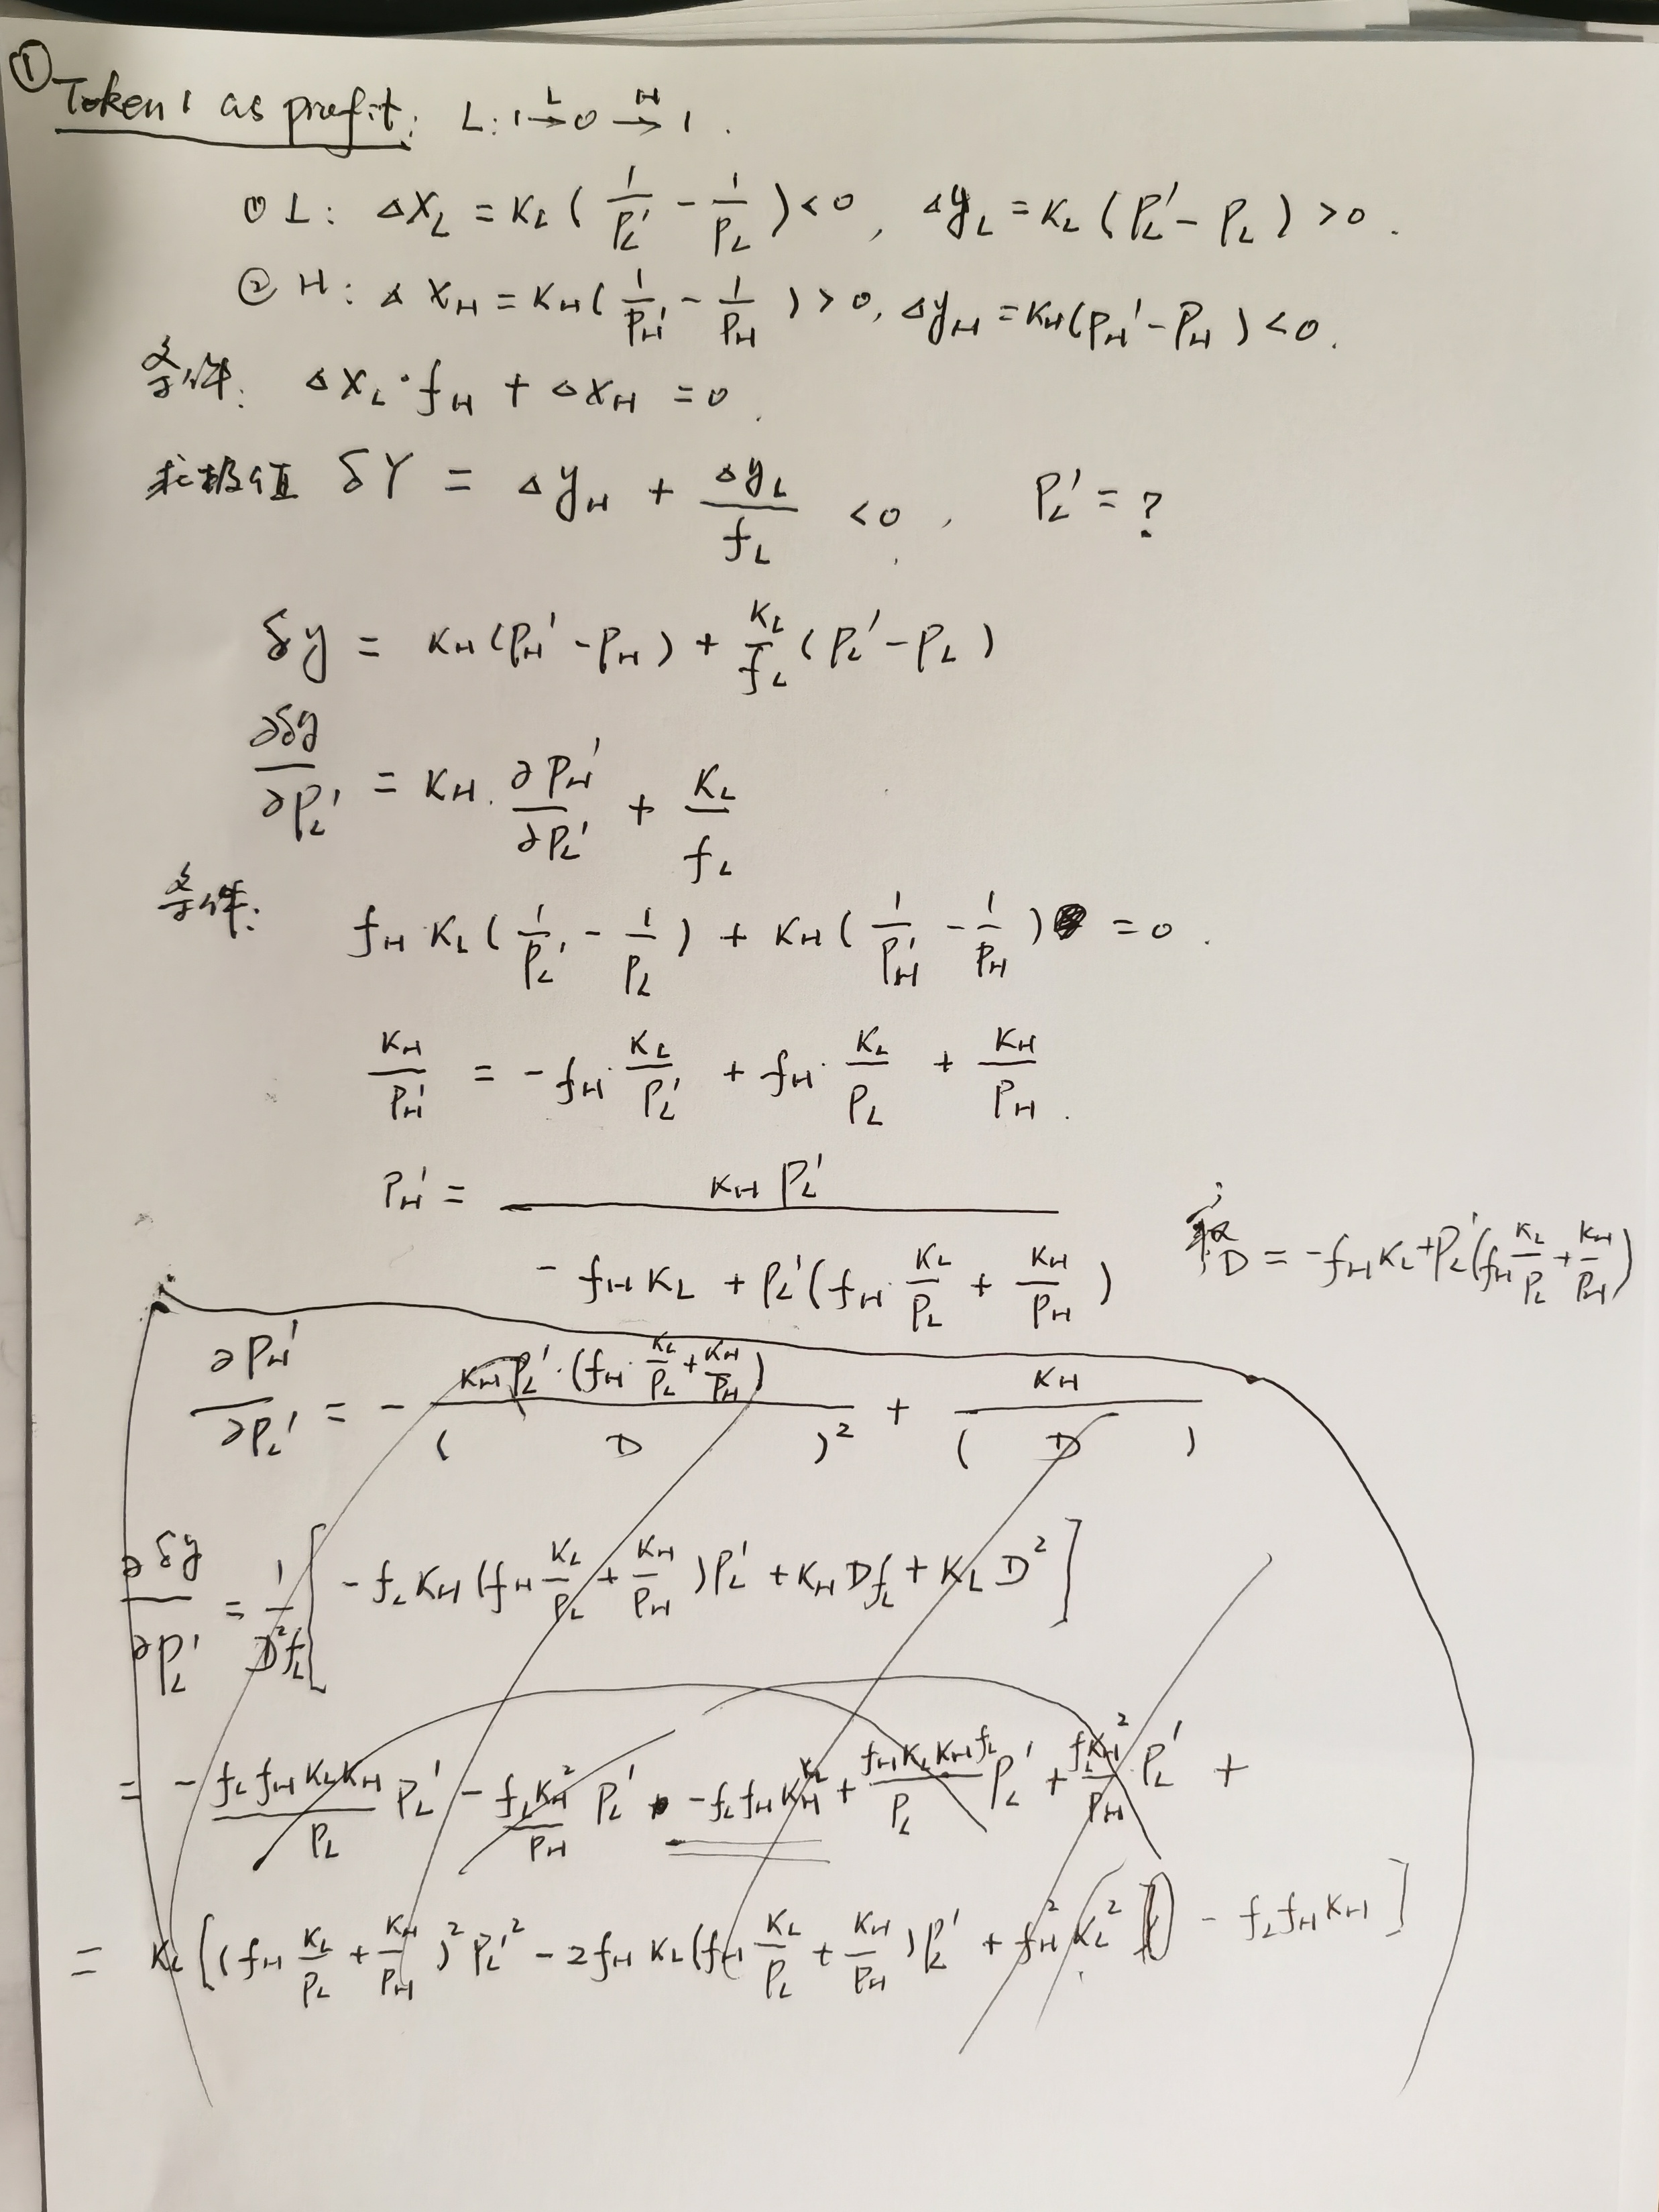 ① Token 1 as profit: L: 1 →(L) 0 →(H) 1.
① L: ΔX_L = K_L ( 1/P_L' - 1/P_L ) < 0, Δy_L = K_L (P_L' - P_L) > 0.
② H: ΔX_H = K_H ( 1/P_H' - 1/P_H ) > 0, Δy_H = K_H (P_H' - P_H) < 0.
条件: ΔX_L · f_H + ΔX_H = 0.
求极值 δY = Δy_H + Δy_L/f_L < 0, P_L' = ?
δy = K_H (P_H' - P_H) + K_L/f_L (P_L' - P_L)
∂δy/∂P_L' = K_H · ∂P_H'/∂P_L' + K_L/f_L
条件: f_H K_L ( 1/P_L' - 1/P_L ) + K_H ( 1/P_H' - 1/P_H ) = 0.
K_H/P_H' = - f_H · K_L/P_L' + f_H · K_L/P_L + K_H/P_H.
P_H' = K_H P_L' / ( - f_H K_L + P_L' (f_H · K_L/P_L + K_H/P_H) )
D = - f_H K_L + P_L' (f_H K_L/P_L + K_H/P_H)
∂P_H'/∂P_L' = - K_H P_L' · (f_H · K_L/P_L + K_H/P_H) / ( D )² + K_H / ( D )
∂δy/∂P_L' = 1/(D² f_L) [ - f_L K_H (f_H K_L/P_L + K_H/P_H) P_L' + K_H D f_L + K_L D² ]
= - f_L f_H K_L K_H/P_L P_L' - f_L K_H²/P_H P_L' - f_L f_H K_H K_L + f_H K_L K_H f_L/P_L P_L' + f_L K_H²/P_H P_L' +
= K_L [ (f_H K_L/P_L + K_H/P_H)² P_L'² - 2 f_H K_L (f_H K_L/P_L + K_H/P_H) P_L' + f_H² K_L² - f_L f_H K_H ]